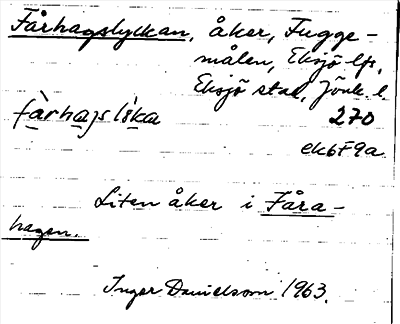 Fårhagslyckan, åker, Fugge-
målen, Eksjö lfs,
Eksjö stad, Jönk. l.
fàrhaJs lŏ́ka 270
ek6F9a
Liten åker i Fåra-
hagen.
Inger Danielsson 1963.